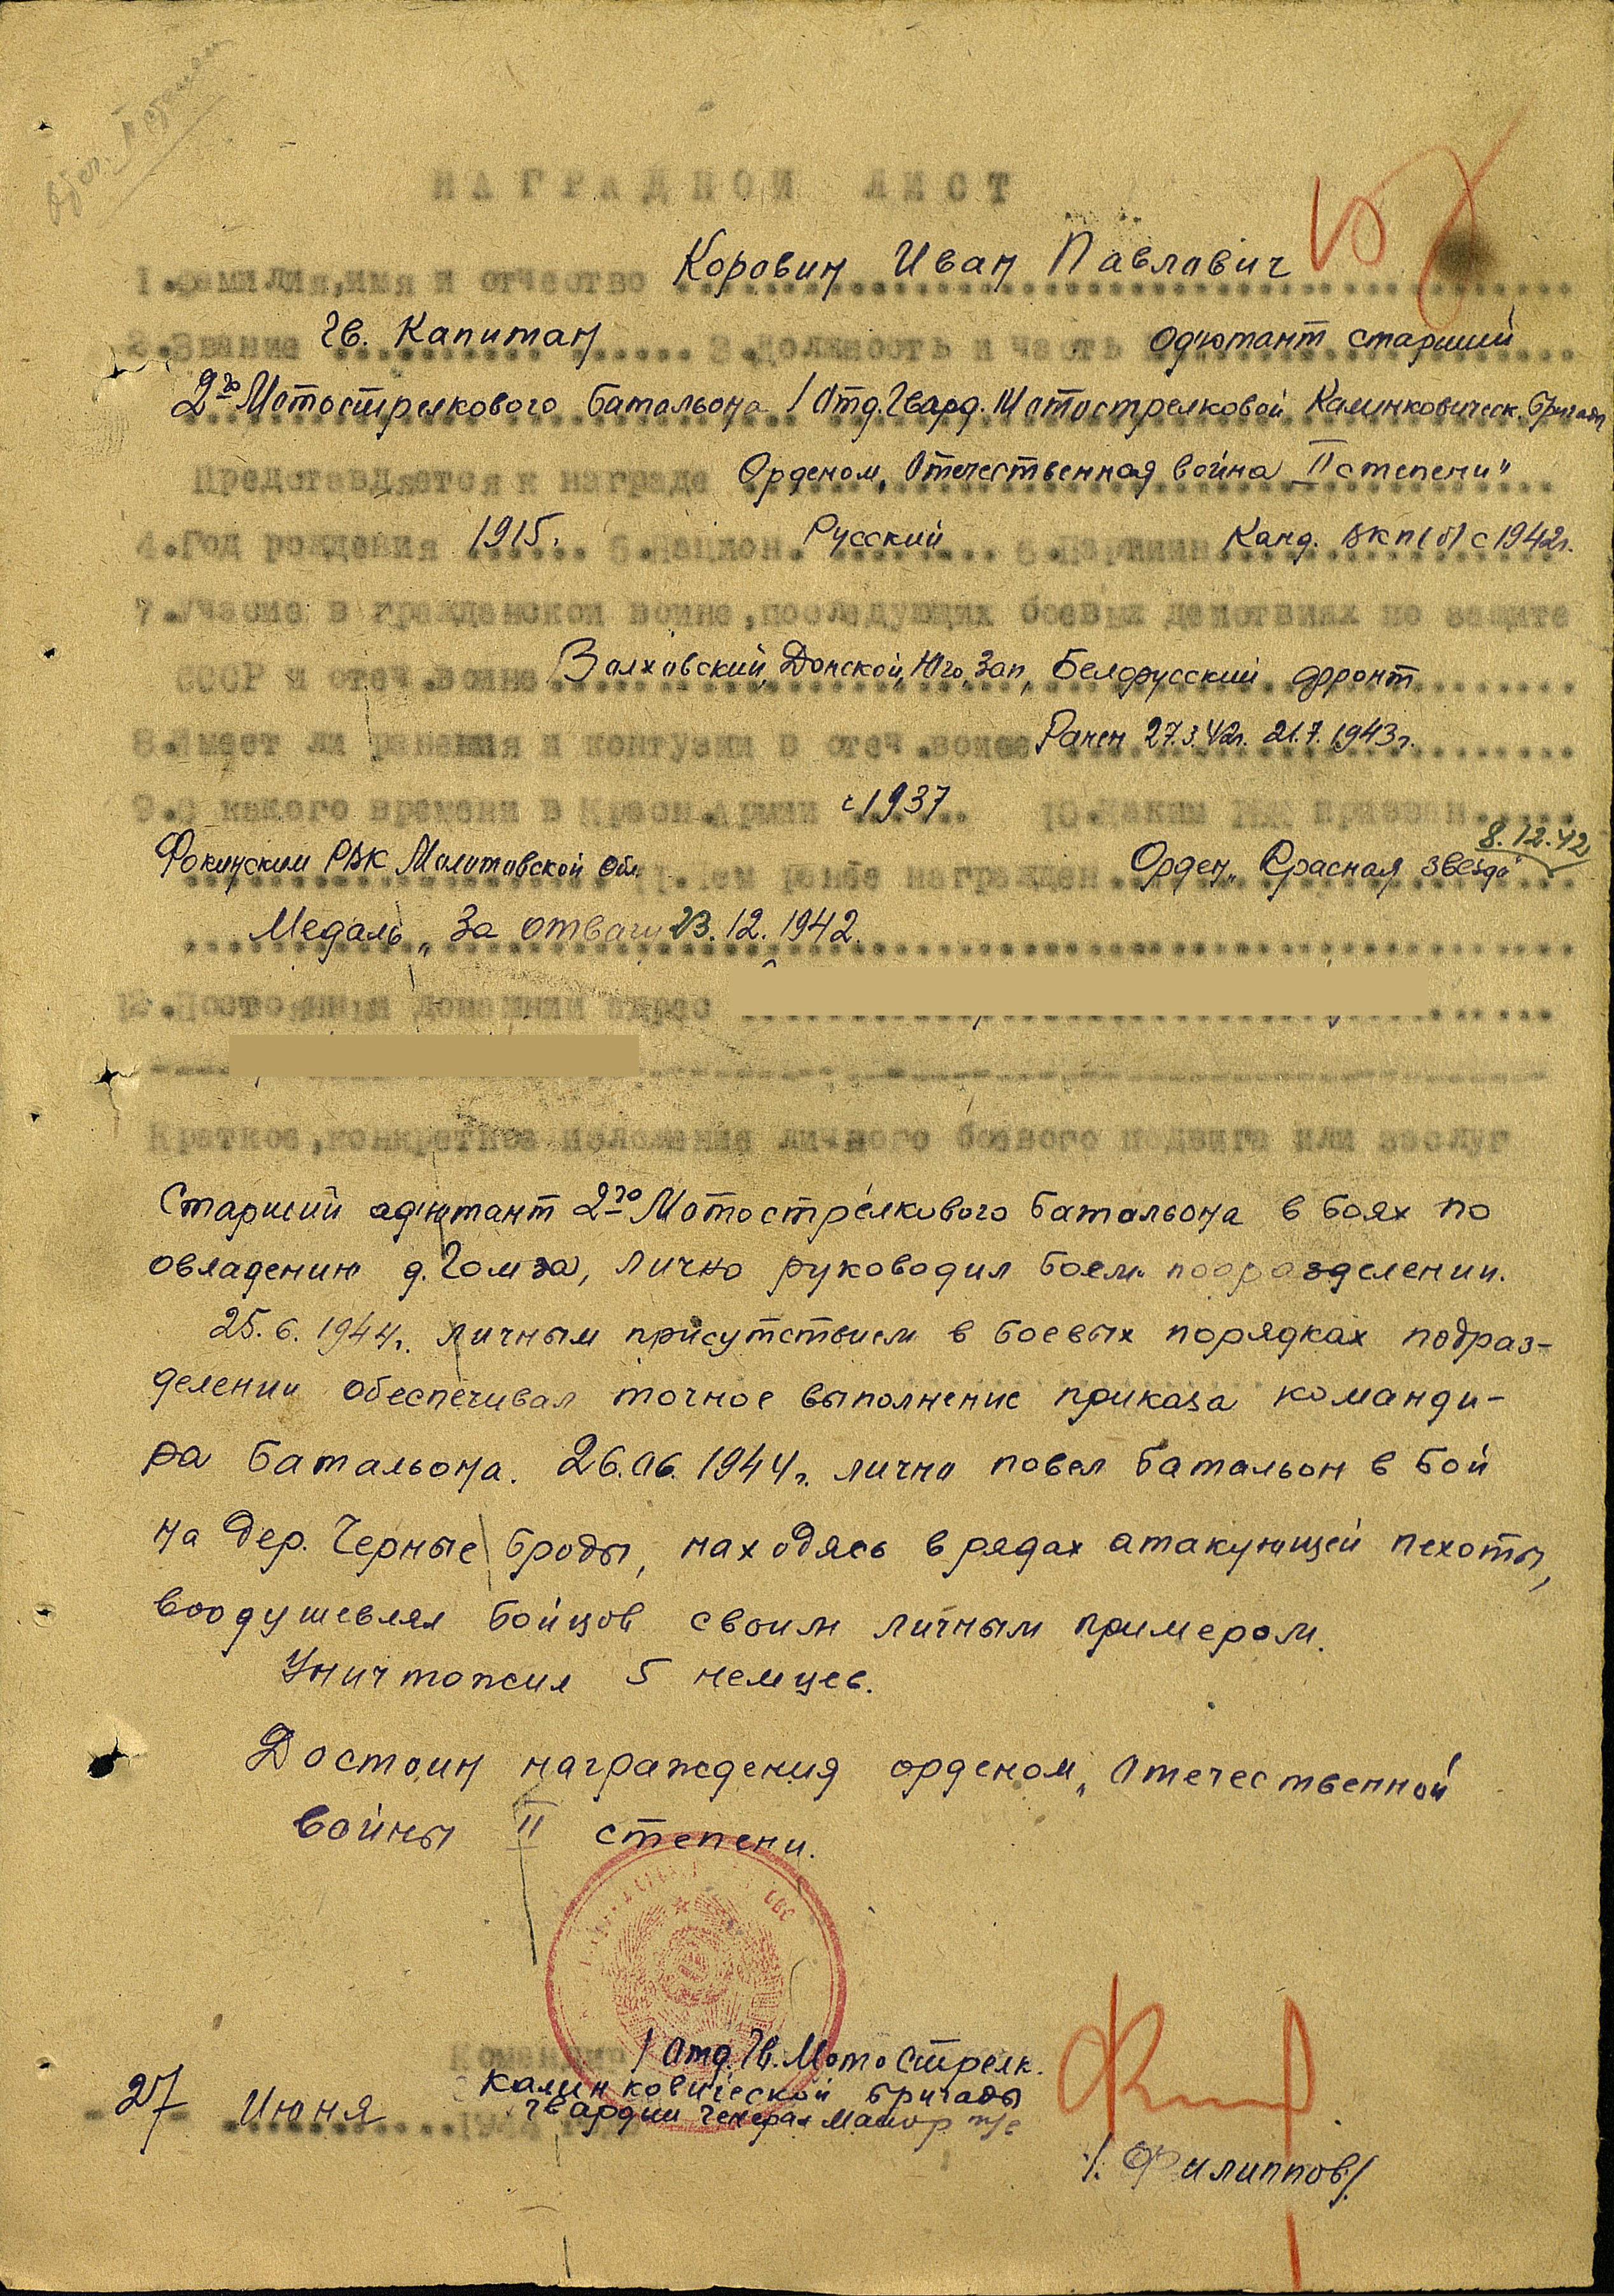 НАГРАДНОЙ ЛИСТ
1.Фамилия,имя и отчество Коровин Иван Павлович
2.Звание Гв. Капитан 3.Должность и часть Адютант старший
2го Мотострелкового батальона 1 Отд. Гвард. Мотострелковой Калинковическ. Бригады
Представляется к награде Орденом „Отечественная война II степени"
4.Год рождения 1915г. 5.Национ. Русский 6.Партийн. Канд. ВКП(б) с 1942г.
7.Участие в гражданской войне,последующих боевых действиях по защите
СССР и отеч.войне Волховский, Донской, Юго, Зап, Белорусский фронт
8.Имеет ли ранения и контузии в отеч.войне Ранен 27.3.42г. 21.7.1943г.
9.С какого времени в Красн.Армии с 1937 10.Каким РВК призван
8.12.42
Фокинским РВК Молотовской обл. 11.Чем ранее награжден Орден „Красная звезда"
Медаль „За отвагу 23.12.1942.
12.Постоянный домашний адрес
Краткое,конкретное изложение личного боевого подвига или заслуг
Старший адютант 2го Мотострелкового батальона в боях по
овладению д. Гомза, лично руководил боем подразделении.
25.6.1944г. личным присутствием в боевых порядках подраз-
делении обеспечивал точное выполнение приказа команди-
ра батальона. 26.06.1944г. лично повел батальон в бой
на дер. Черные Броды, находясь в рядах атакующей пехоты,
воодушевлял бойцов своим личным примером.
Уничтожил 5 немцев.
Достоин награждения орденом „Отечественной
войны II степени.
Командир 1 Отд. Гв. Мотострелк.
Калинковической бригады
гвардии генерал майор т/в
27 Июня 1944 года
/Филиппов/